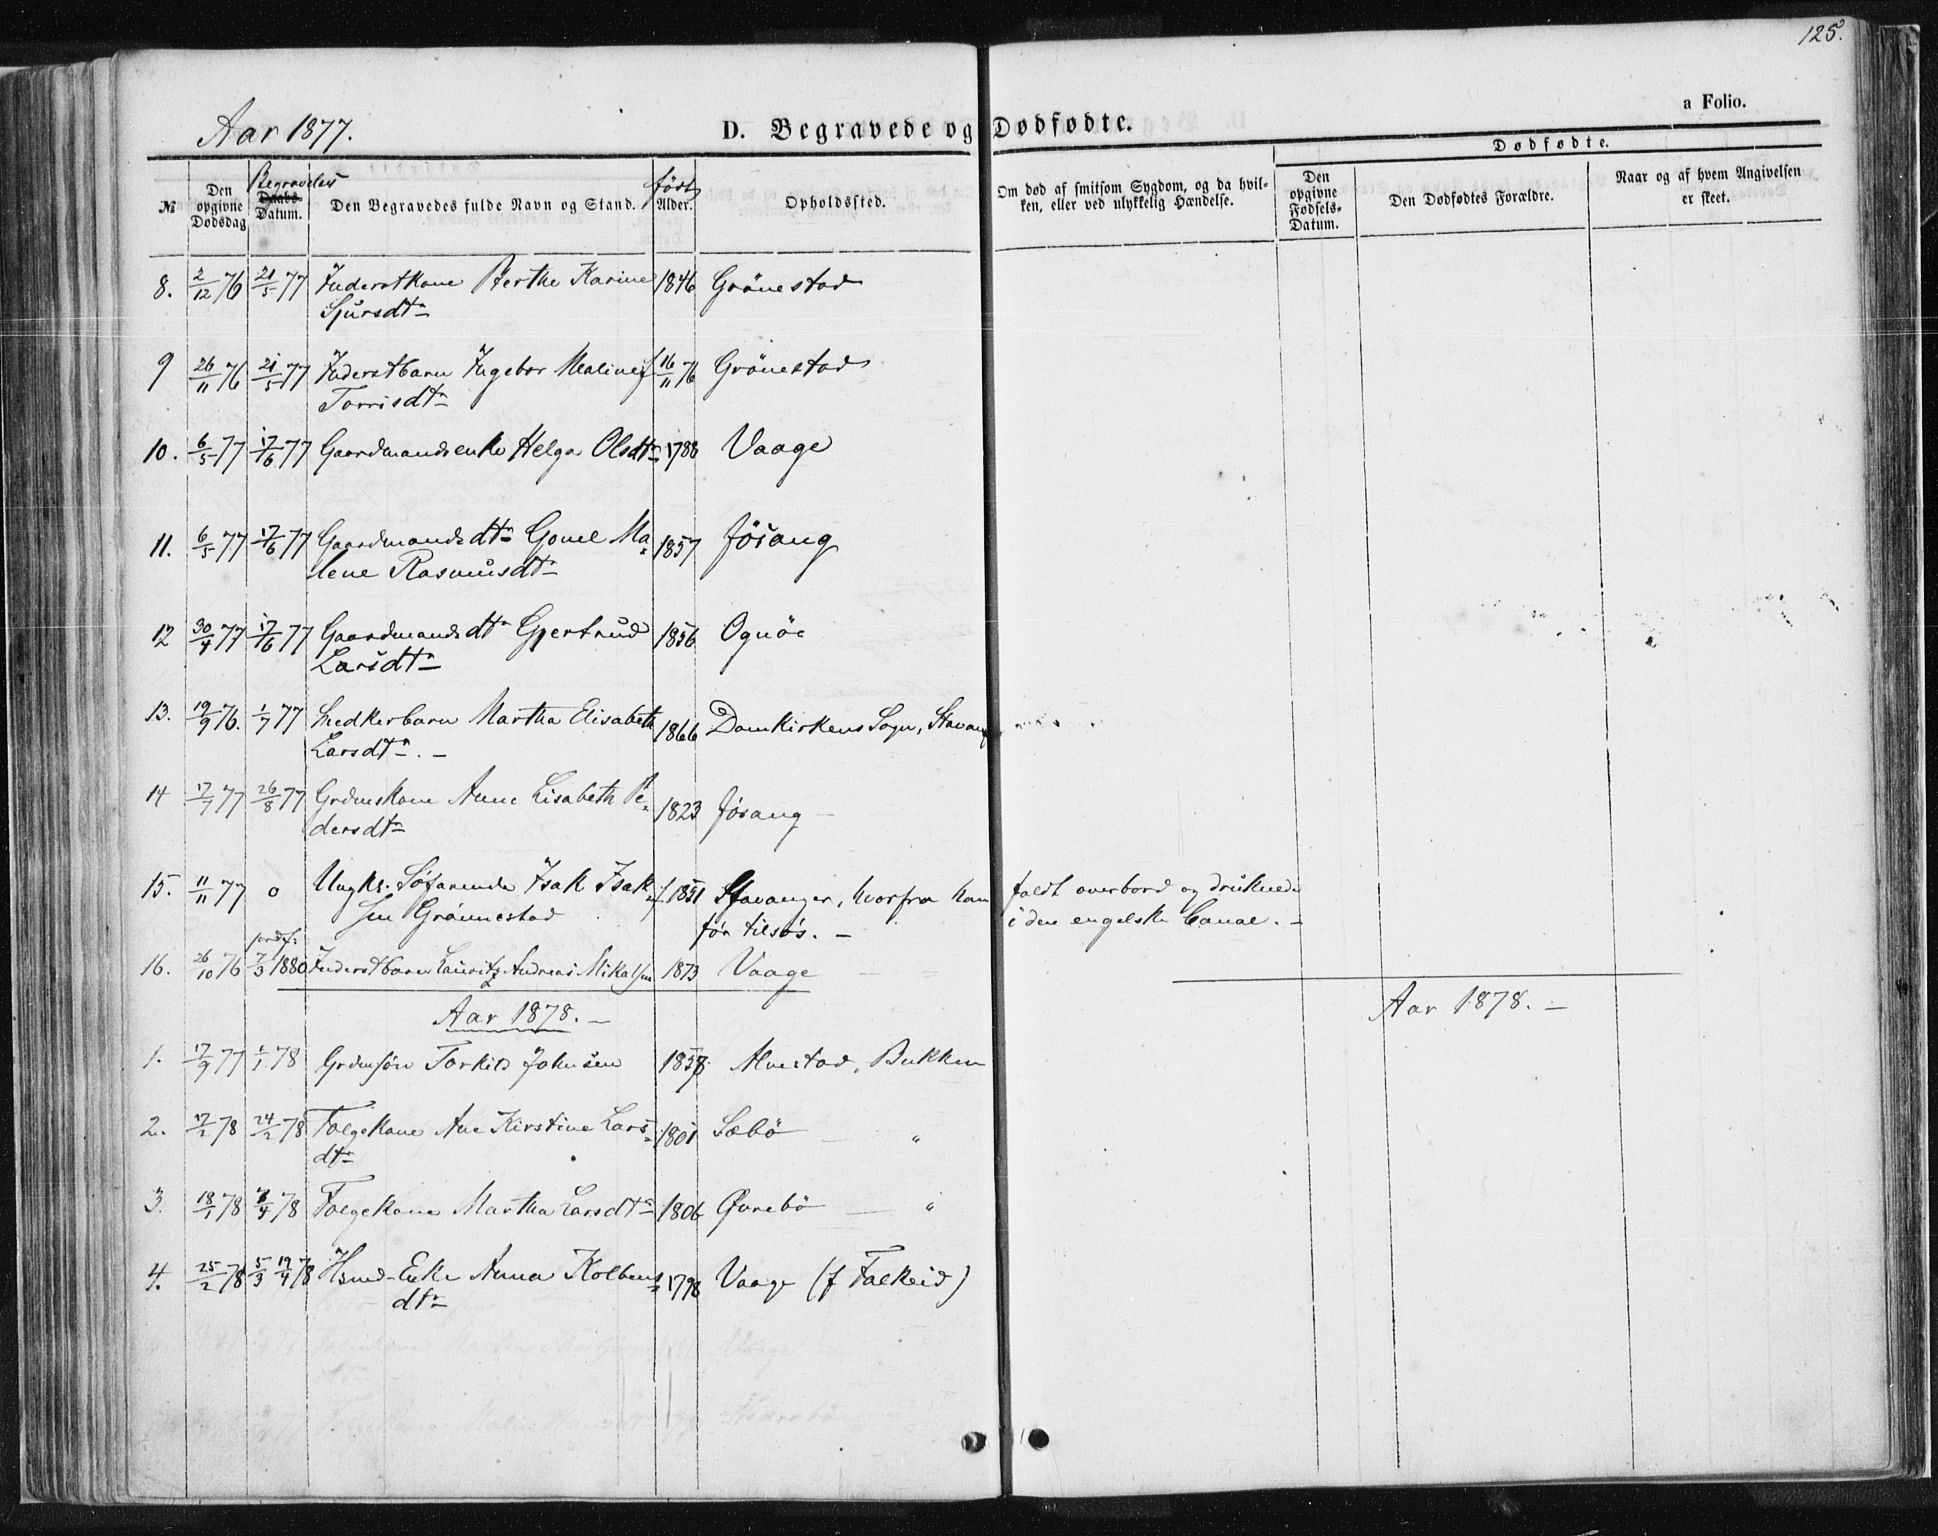 125.
a Folio.
Aar 1877.
D. Begravede og Dødfødte.
Dødfødte.
№
Den opgivne Dødsdag
Begravelses
Daabs-Datum.
Den Begravedes fulde Navn og Stand.
født
Alder.
Opholdssted.
Om død af smitsom Sygdom, og da hvilken, eller ved ulykkelig Hændelse.
Den opgivne Fødsels-Datum.
Den Dødfødtes Forældre.
Naar og af hvem Angivelsen er skeet.
8. 2/12 76 21/5 77 Inderstkone Berthe Karine 1846 Grönestad
Sjursdtr
9 26/11 76 21/5 77 Inderstbarn Ingebor Maline f 16/11 76 Grönestad
Torrisdtr
10. 6/5 77 17/6 77 Gaardmandsenke Helga Olsdtr 1788 Vaage
11. 6/5 77 17/6 77 Gaardmandsdtr Gonel Ma= 1857 Jösang
lene Rasmusdtr
12 30/4 77 17/6 77 Gaardmandsdtr Gjertrud 1856 Ognöe
Larsdtr
13. 19/9 76. 1/7 77 Snedkerbarn Martha Elisabeth 1866 Domkirkens Sogn, Stavanger
Larsdtr. –
14 17/7 77 26/8 77 Grdmskone Anne Lisabeth Pe= 1823 Jösang –
dersdtr
15. 11/11 77 0 Ungkr. Söfarende Isak Isak= f 1851 Stavanger, hvorfra han faldt overbord og druknede
sen Grönnestad för tilsös. – i den engelske Canal. –
jordf.
16. 26/10 76 7/3 1880 Inderstbarn Lauritz Andreas Mikalsen 1873 Vaage
Aar 1878. – Aar 1878. –
1. 17/9 77 1/1 78 Grdmsön Torkild Johnsen 1858. Alvestad, Bukken
2. 17/2 78 24/2 78 Folgekone Ane Kirstine Lars= 1801 Sæbö – "
dtr
3. 18/1 78 7/4 78 Folgekone Martha Larsdtr 1806 Øvrebö – "
4. 25/2 78 5/3 19/4 78 Hsmd-Enke Anna Kolbens= 1798 Vaage (f Falkeid)
dtr